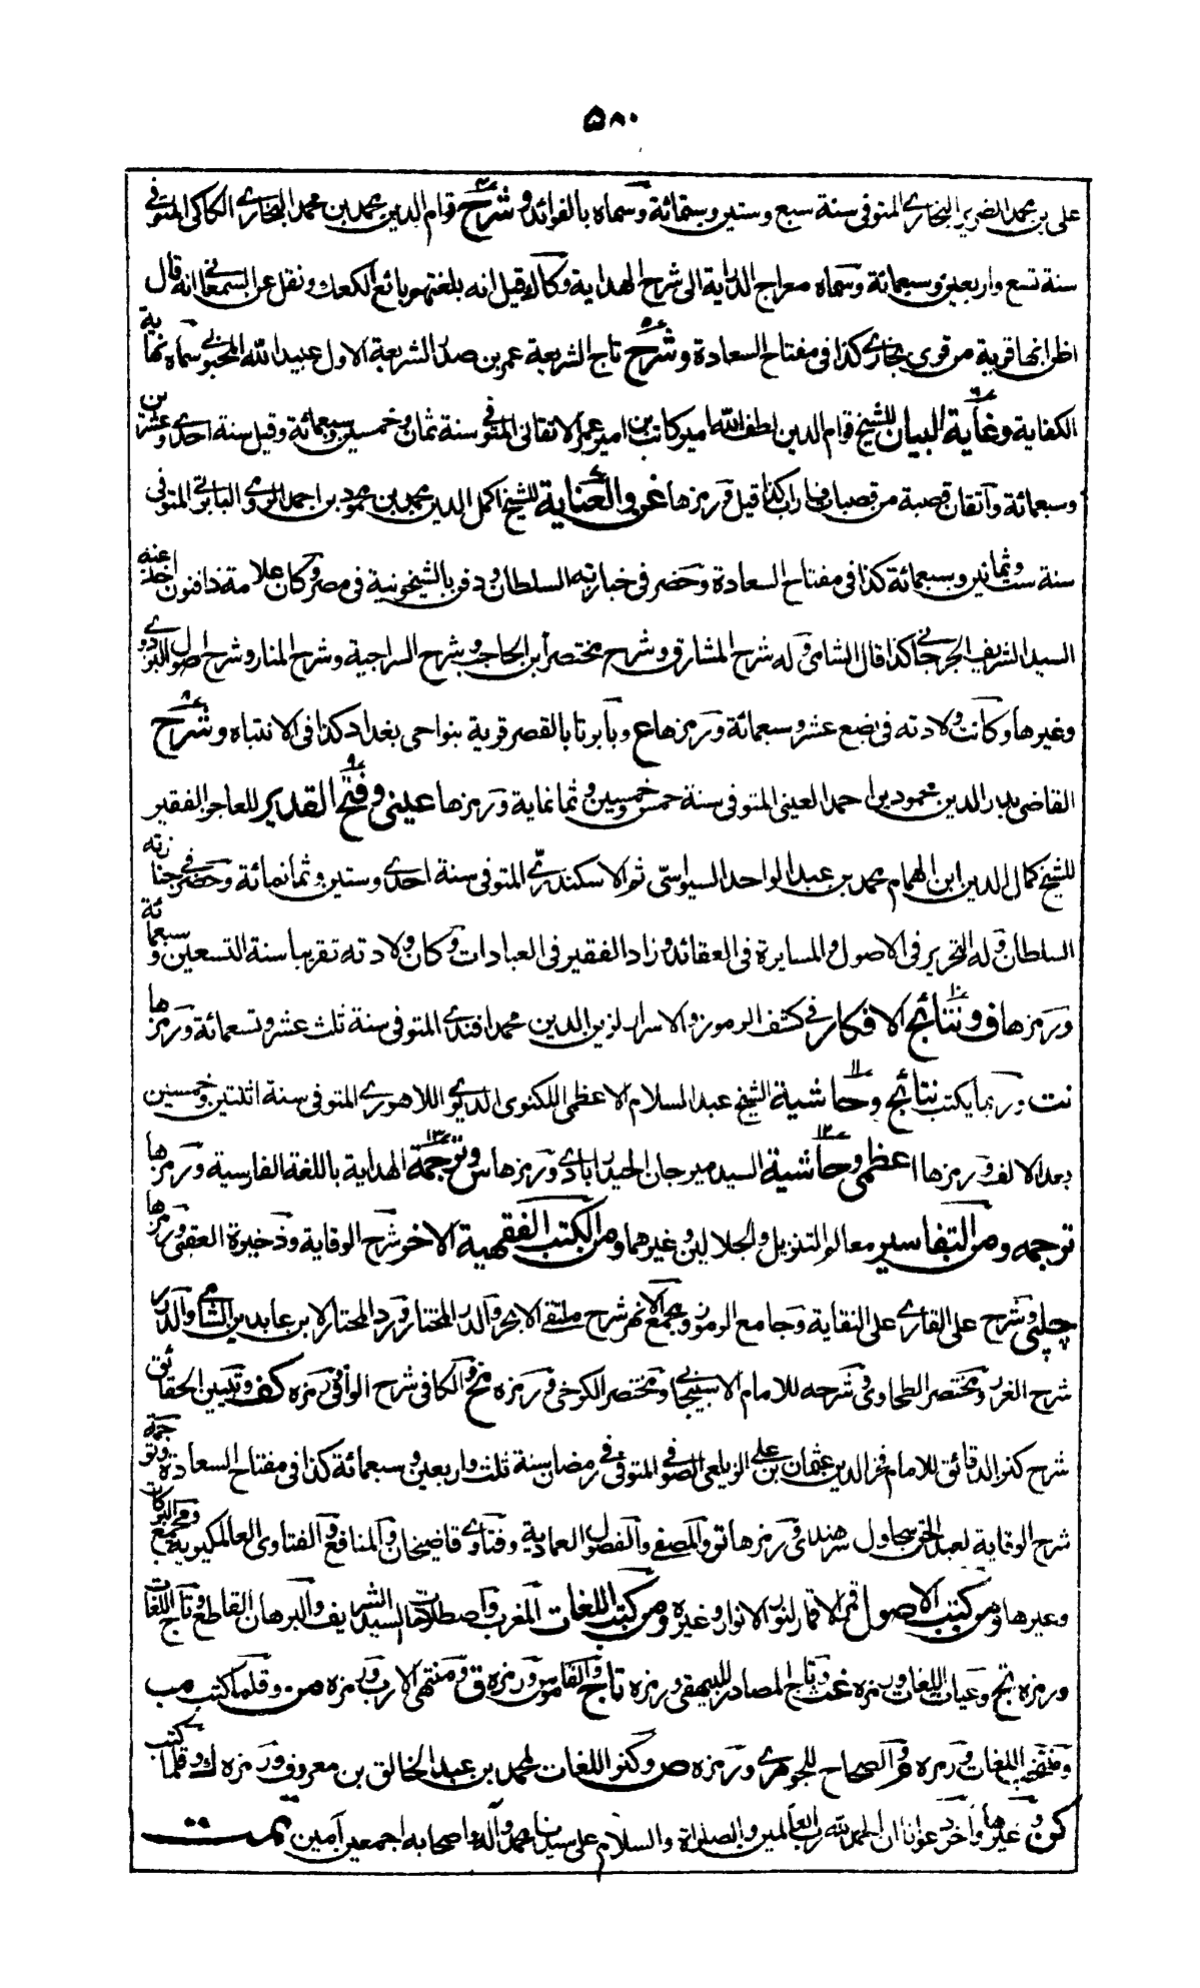 ٥٨٠
على بن محمد الضرير البخارى المتوفى سنة سبع وستين وستمائة وسماه بالفوائد وشرح قوام الدين محمد بن محمد البخارى الكاكى المتوفى
سنة تسع واربعين وسبعمائة وسماه معراج الدراية الى شرح الهداية وكاك قيل انه بلغتهم بائع الكعك ونقل عن السمعانى انه قال
اظن انها قرية من قرى بخارى كذا فى مفتاح السعادة وشرح تاج الشريعة عمر بن صدر الشريعة الاول عبيد الله المحبوبى سماه نهاية
الكفاية وغاية البيان للشيخ قوام الدين لطف الله امير كاتب بن امير عمر الاتقانى المتوفى سنة ثمان وخمسين وسبعمائة وقيل سنة احدى وعشرين
وسبعمائة واتقان قصبة من قصبات فاراب كذا قيل ورمزها غ والعناية للشيخ اكمل الدين محمد بن محمود بن احمد الرومى البابرتى المتوفى
سنة ست وثمانين وسبعمائة كذا فى مفتاح السعادة وحضر فى جنازته السلطان ودفن بالشيخونية فى مصر وكان علامة ذا فنون اخذ عنه
السيد الشريف الجرجانى كذا قال الشامى وله شرح المشارق وشرح مختصر ابن الحاجب وشرح السراجية وشرح المنار وشرح اصول البزدوى
وغيرها وكانت ولادته فى بضع عشر وسبعمائة ورمزها ع وبابرتا بالقصر قرية بنواحى بغداد كذا فى الانتباه وشرح
القاضى بدر الدين محمود بن احمد العينى المتوفى سنة خمس وخمسين وثمانماية ورمزها عينى وفتح القدير للعاجز الفقير
للشيخ كمال الدين ابن الهمام محمد بن عبد الواحد السيواسى ثم الاسكندرى المتوفى سنة احدى وستين وثمانمائة وحضر فى جنازته
السلطان وله التحرير فى الاصول والمسايرة فى العقائد وزاد الفقير فى العبادات وكان ولادته تقريبا سنة التسعين وسبعمائة
ورمزها ف ونتائج الافكار فى كشف الرموز والاسرار لزين الدين محمد افندى المتوفى سنة ثلث عشر وتسعمائة ورمزها
نت وربما يكتب نتائج وحاشية الشيخ عبد السلام الاعظمى اللكنوى الديوى اللاهورى المتوفى سنة اثنتين وخمسين
بعد الالف ورمزها اعظمى وحاشية السيد ميرجان الحيدرابادى ورمزها س وترجمة الهداية باللغة الفارسية ورمزها
ترجمه ومن التفاسير معالم التنزيل والجلالين وغيرهما ومن الكتب الفقهية الاخر شرح الوقاية وذخيرة العقبى ورمزها
چلپى وشرح على القارى على النقاية وجامع الرموز ومجمع الانهر شرح ملتقى الابحر والدر المختار ورد المحتار لابن عابدين الشامى والدرر
شرح الغرر ومختصر الطحاوى وشرحه للامام الاسبيجابى ومختصر الكرخى ورمزه مخ والكافى شرح الوافى رمزه كف وتبيين الحقائق
شرح كنز الدقائق للامام فخر الدين عثمان بن على الزيلعى الصوفى المتوفى فى رمضان سنة ثلث واربعين وسبعمائة كذا فى مفتاح السعادة وترجمة
شرح الوقاية لعبد الحق سجاول سرهندى ورمزها تو والمصفى والفصول العمادية وفتاوى قاضيخان والمنافع والفتاوى العالمكيرية ومجمع البركات
وغيرها ومن كتب الاصول قمر الاقمار لنور الانوار وغيره ومن كتب اللغات المغرب واصطلاحات السيد الشريف والبرهان القاطع وتاج اللغات
ورمزه تج وغياث اللغات ورمزه غث وتاج المصادر للبيهقى ورمزه تاج والقاموس ورمزه ق ومنتهى الارب ورمزه من وقلما كتب مب
ومنتخب اللغات ورمزه م والصحاح للجوهرى ورمزه ص وكنز اللغات لمحمد بن عبد الخالق بن معروف ورمزه ك وقلما كتب
كن وغيرها وآخر دعوانا ان الحمد لله رب العالمين والصلوة والسلام على سيدنا محمد وآله واصحابه اجمعين آمين تمت